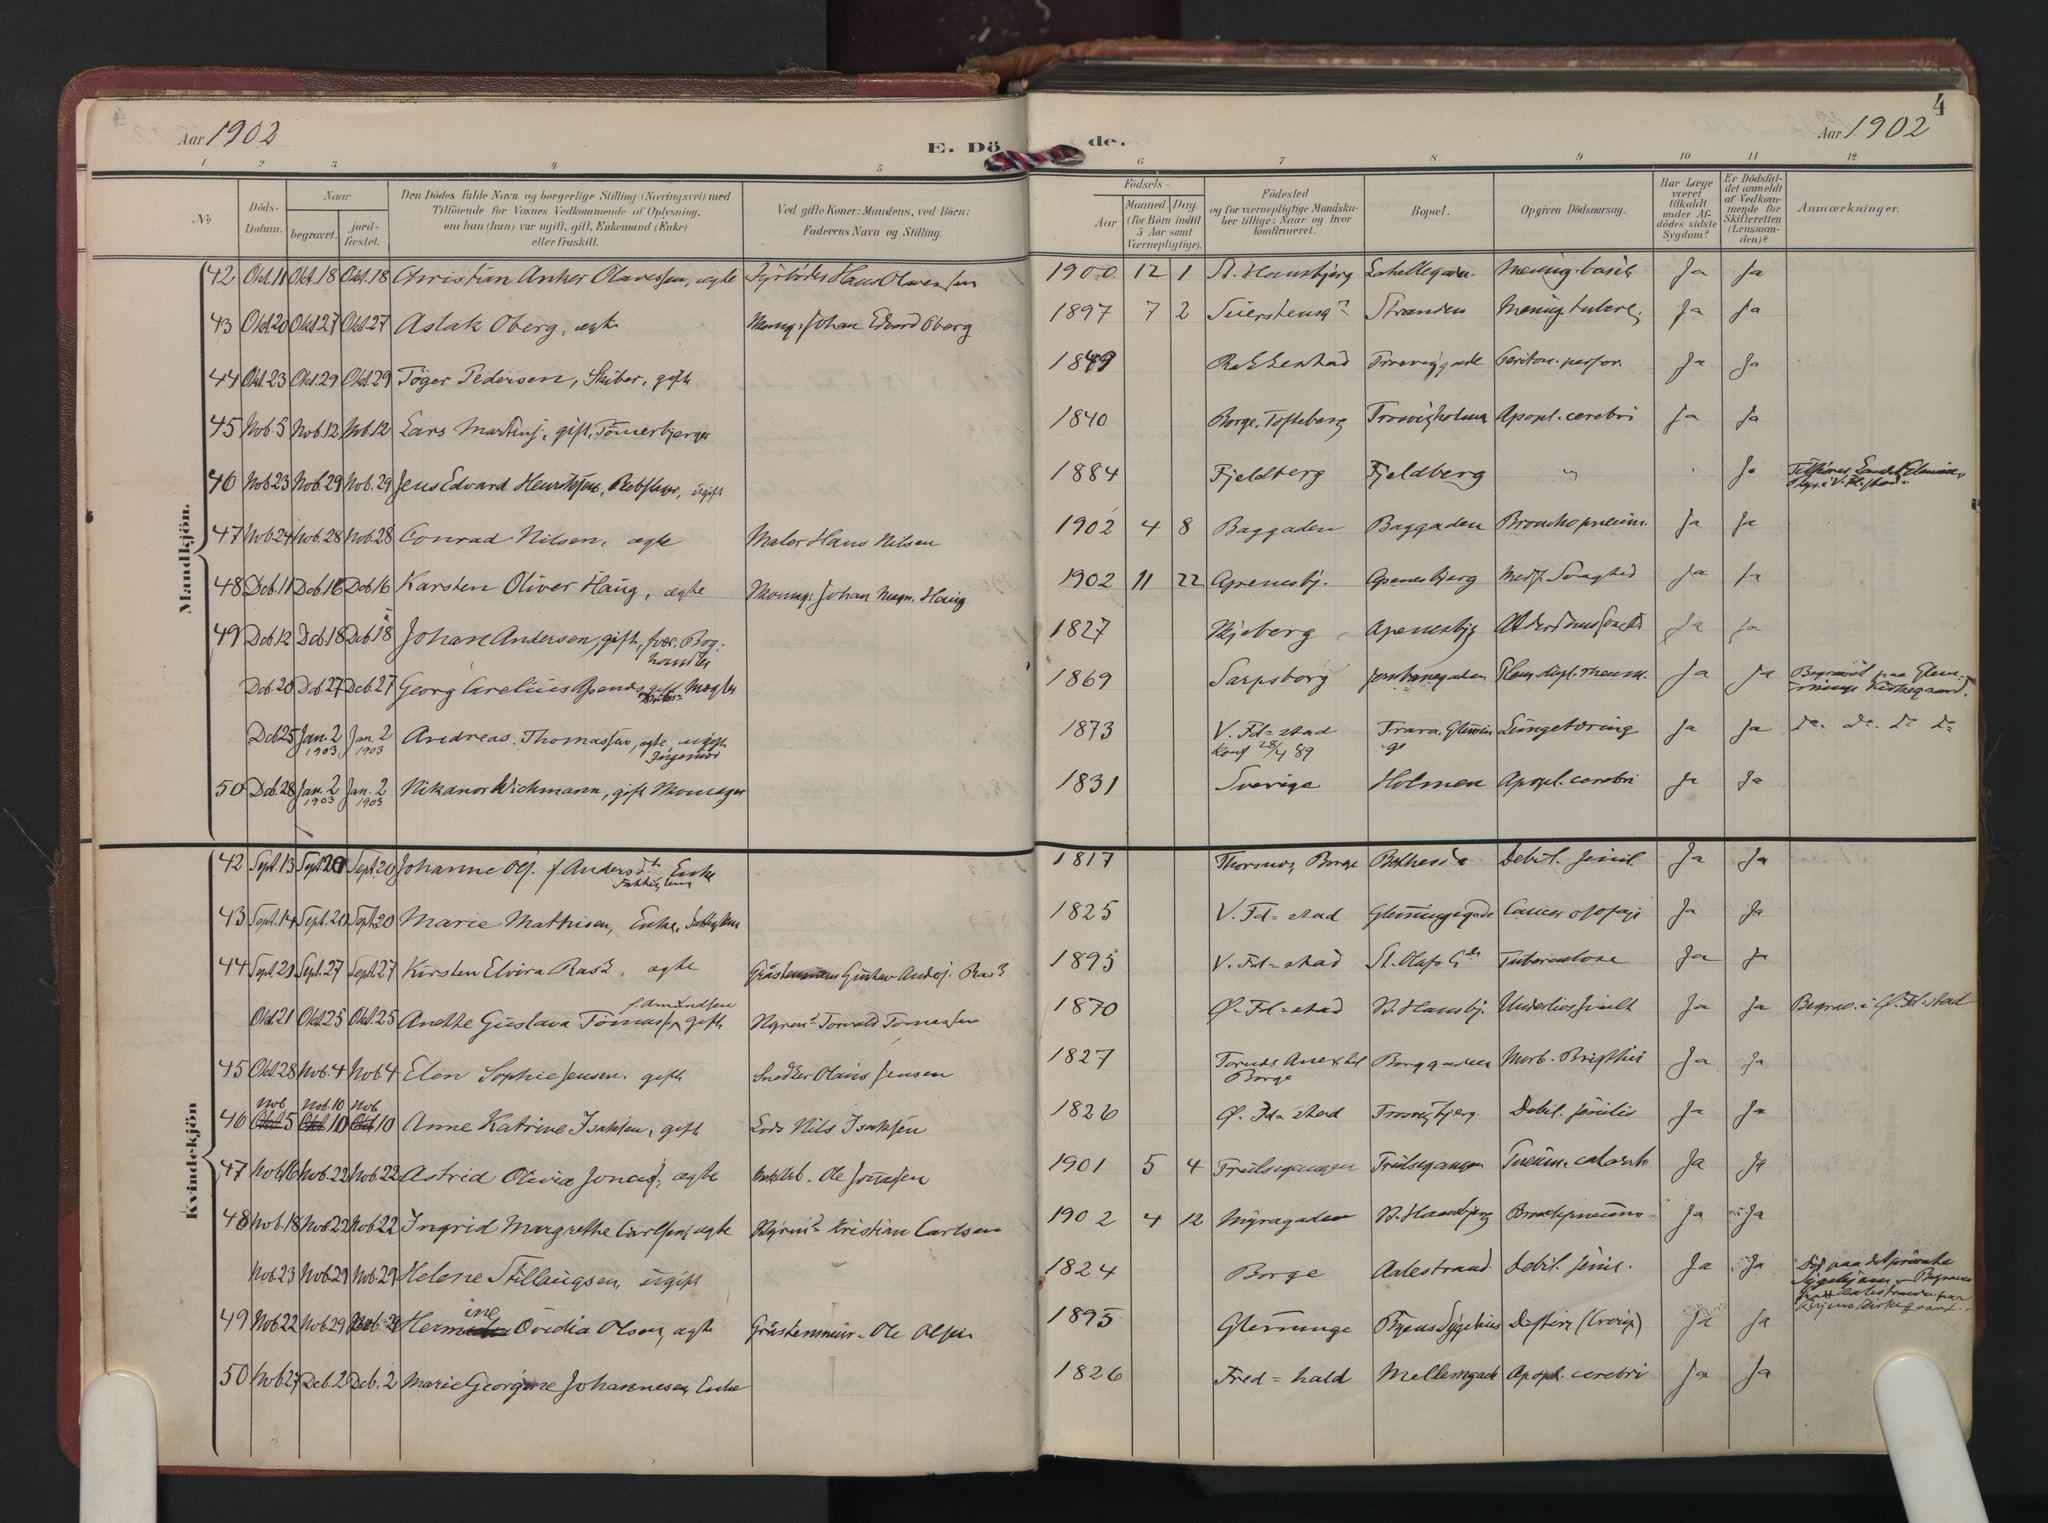 4
Aar 1902
E. Dö
de.
Aar 1902
1 2 3 4 5 6 7 8 9 10 11 12
No
Döds-Datum.
Naar
begravet.
jord-fæstet.
Den Dödes fulde Navn og borgerlige Stilling (Næringsvei) med
Tilföiende for Voxnes Vedkommende af Oplysning,
om han (hun) var ugift, gift, Enkemand (Enke)
eller fraskilt.
Ved gifte Koner: Mandens, ved Börn:
Faderens Navn og Stilling.
Födsels-
Aar
Maaned. Dag.
(for Börn indtil
5 Aar samt
Værnepligtige).
Födested
og for værnepligtige Mandskaber tillige: Naar og hvor
konfirmeret.
Bopæl.
Opgiven Dödsaarsag.
Har Læge
været
tilkaldt
under Afdödes sidste
Sygdom?
Er Dödsfaldet anmeldt
af Vedkommende for
Skifteretten
(Lensmanden)?
Anmærkninger.
Mandkjön.
42 Okt.11 Okt.18 Okt.18 Christian Anker Olavessen, ægte Fyrböder Hans Olavessen 1900 12 1 St. Hansbjerg Mening. basil Ja Ja
43 Okt.20 Okt.27 Okt.27 Aslak Oberg, ægte Johan Edvard Oberg 1897 7 2 Stranden Mening. tuberc. Ja Ja
44 Okt.23 Okt.29 Okt.29 Töger Pedersen, Skiber, gift Rekkestad Periton. perfor. Ja Ja
45 Nov.5 Nov.12 Nov.12 Lars Martins., gift, Tömmermand 1840 Borge, Tofteberg Trosvigholmen Apopl. cerebri Ja Ja
46 Nov.23 Nov.29 Nov.29 Jens Edvard Henriksen, Rebslager, ugift 1884 Fjeldberg Fjeldberg " Ja
47 Nov.24 Nov.28 Nov.28 Conrad Nilsen, ægte Maler Hans Nilsen 1902 4 8 Baggaden Baggaden Bronchopneum. Ja Ja
48 Deb.11 Deb.16 Deb.16 Karsten Oliver Haug, ægte Johan Magn. Haug 1902 11 22 Apenesbj. Apenesbjerg Medf. Svaghed Ja Ja
49 Deb.12 Deb.18 Deb.18 Johan Andersen, gift, forr. Boghandler 1827 Skjeberg Apenesbjg Alderdomssvagh. Ja Ja
Deb.20 Deb.27 Deb.27 Georg Carelius Apenes, gift Mægler 1869 Sarpsborg Jernbanegaden Ja Ja Begravet paa Glemminge Kirkegaard.
Deb.25 Jan.2 1903 Jan.2 1903 Andreas Thomassen, ægte, ugift 1873 V. Fd=stad Konf 28/4 89 Trara. Glemminge Lungetæring Ja Ja do. do. do do
50 Deb.28 Jan.2 1903 Jan.2 1903 Nikanor Wichmann, gift Skomager 1831 Sverige Holmen Apopl. cerebri Ja Ja
Kvindekjön
42 Sept.13 Sept.20 Sept.20 Johanne Ols. f. Andersdt. Enke Fattiglem 1817 Thorsnes, Borge Bethesda Debil. senil Ja Ja
43 Sept.14 Sept.20 Sept.20 Marie Mathisen, Enke, Fattiglem 1825 V. Fd=stad Glemmingegade Cancer Ja Ja
44 Sept.21 Sept.27 Sept.27 Kirsten Elvira Rask, ægte Gråstensmur Gustav Anders. Rask 1895 V. Fd=stad St. Olafs Gde Tuberculose Ja Ja
Okt.21 Okt.25 Okt.25 Anette Gustava Tömmassen f. Amundsen gift 1870 Ø. Fd=stad St. Hansbj. Ja Ja Begrav. i Ø. Fd=stad
45 Okt.28 Nov.4 Nov.4 Elen Sophie Jensen, gift Snedker Olaus Jensen 1827 Torsnes Annex til Borge Borggaden Morb. Brigthii Ja Ja
46 Nov 5 Nov.10 Nov 10 Anne Katrine Isaksen, gift Lods Nils Isaksen 1826 Ø. Fd=stad Trosvigbjerg. Debil. senilis Ja Ja
47 Nov.16 Nov.22 Nov.22 Astrid Olivia Jonas., ægte Ole Jonassen 1901 5 4 Frydsegangen Frydsegangen Pneum. catarrh Ja Ja
48 Nov.18 Nov.22 Nov.22 Ingrid Margrethe Carlsen, ægte Kristian Carlsen 1902 4 12 Myragaden St. Hansbjerg Bronchpneumo- Ja Ja
Nov.23 Nov.29 Nov.29 Helene Stillaugsen, ugift 1824 Borge Aalestrand. Debil. senil. Ja Ja Död paa det private Sygehjem
49 Nov.22 Nov.29 Nov.29 Hermine Ovidia Olsen, ægte Gråstensmur. Ole Olsen 1895 Glemminge Byens Sygehus Difteri (Croup) Ja Ja
50 Nov.27 Deb.2 Deb.2 Marie Georgine Johannesen, Enke 1826 Fred=hald Mellemgade Apopl. cerebri Ja Ja